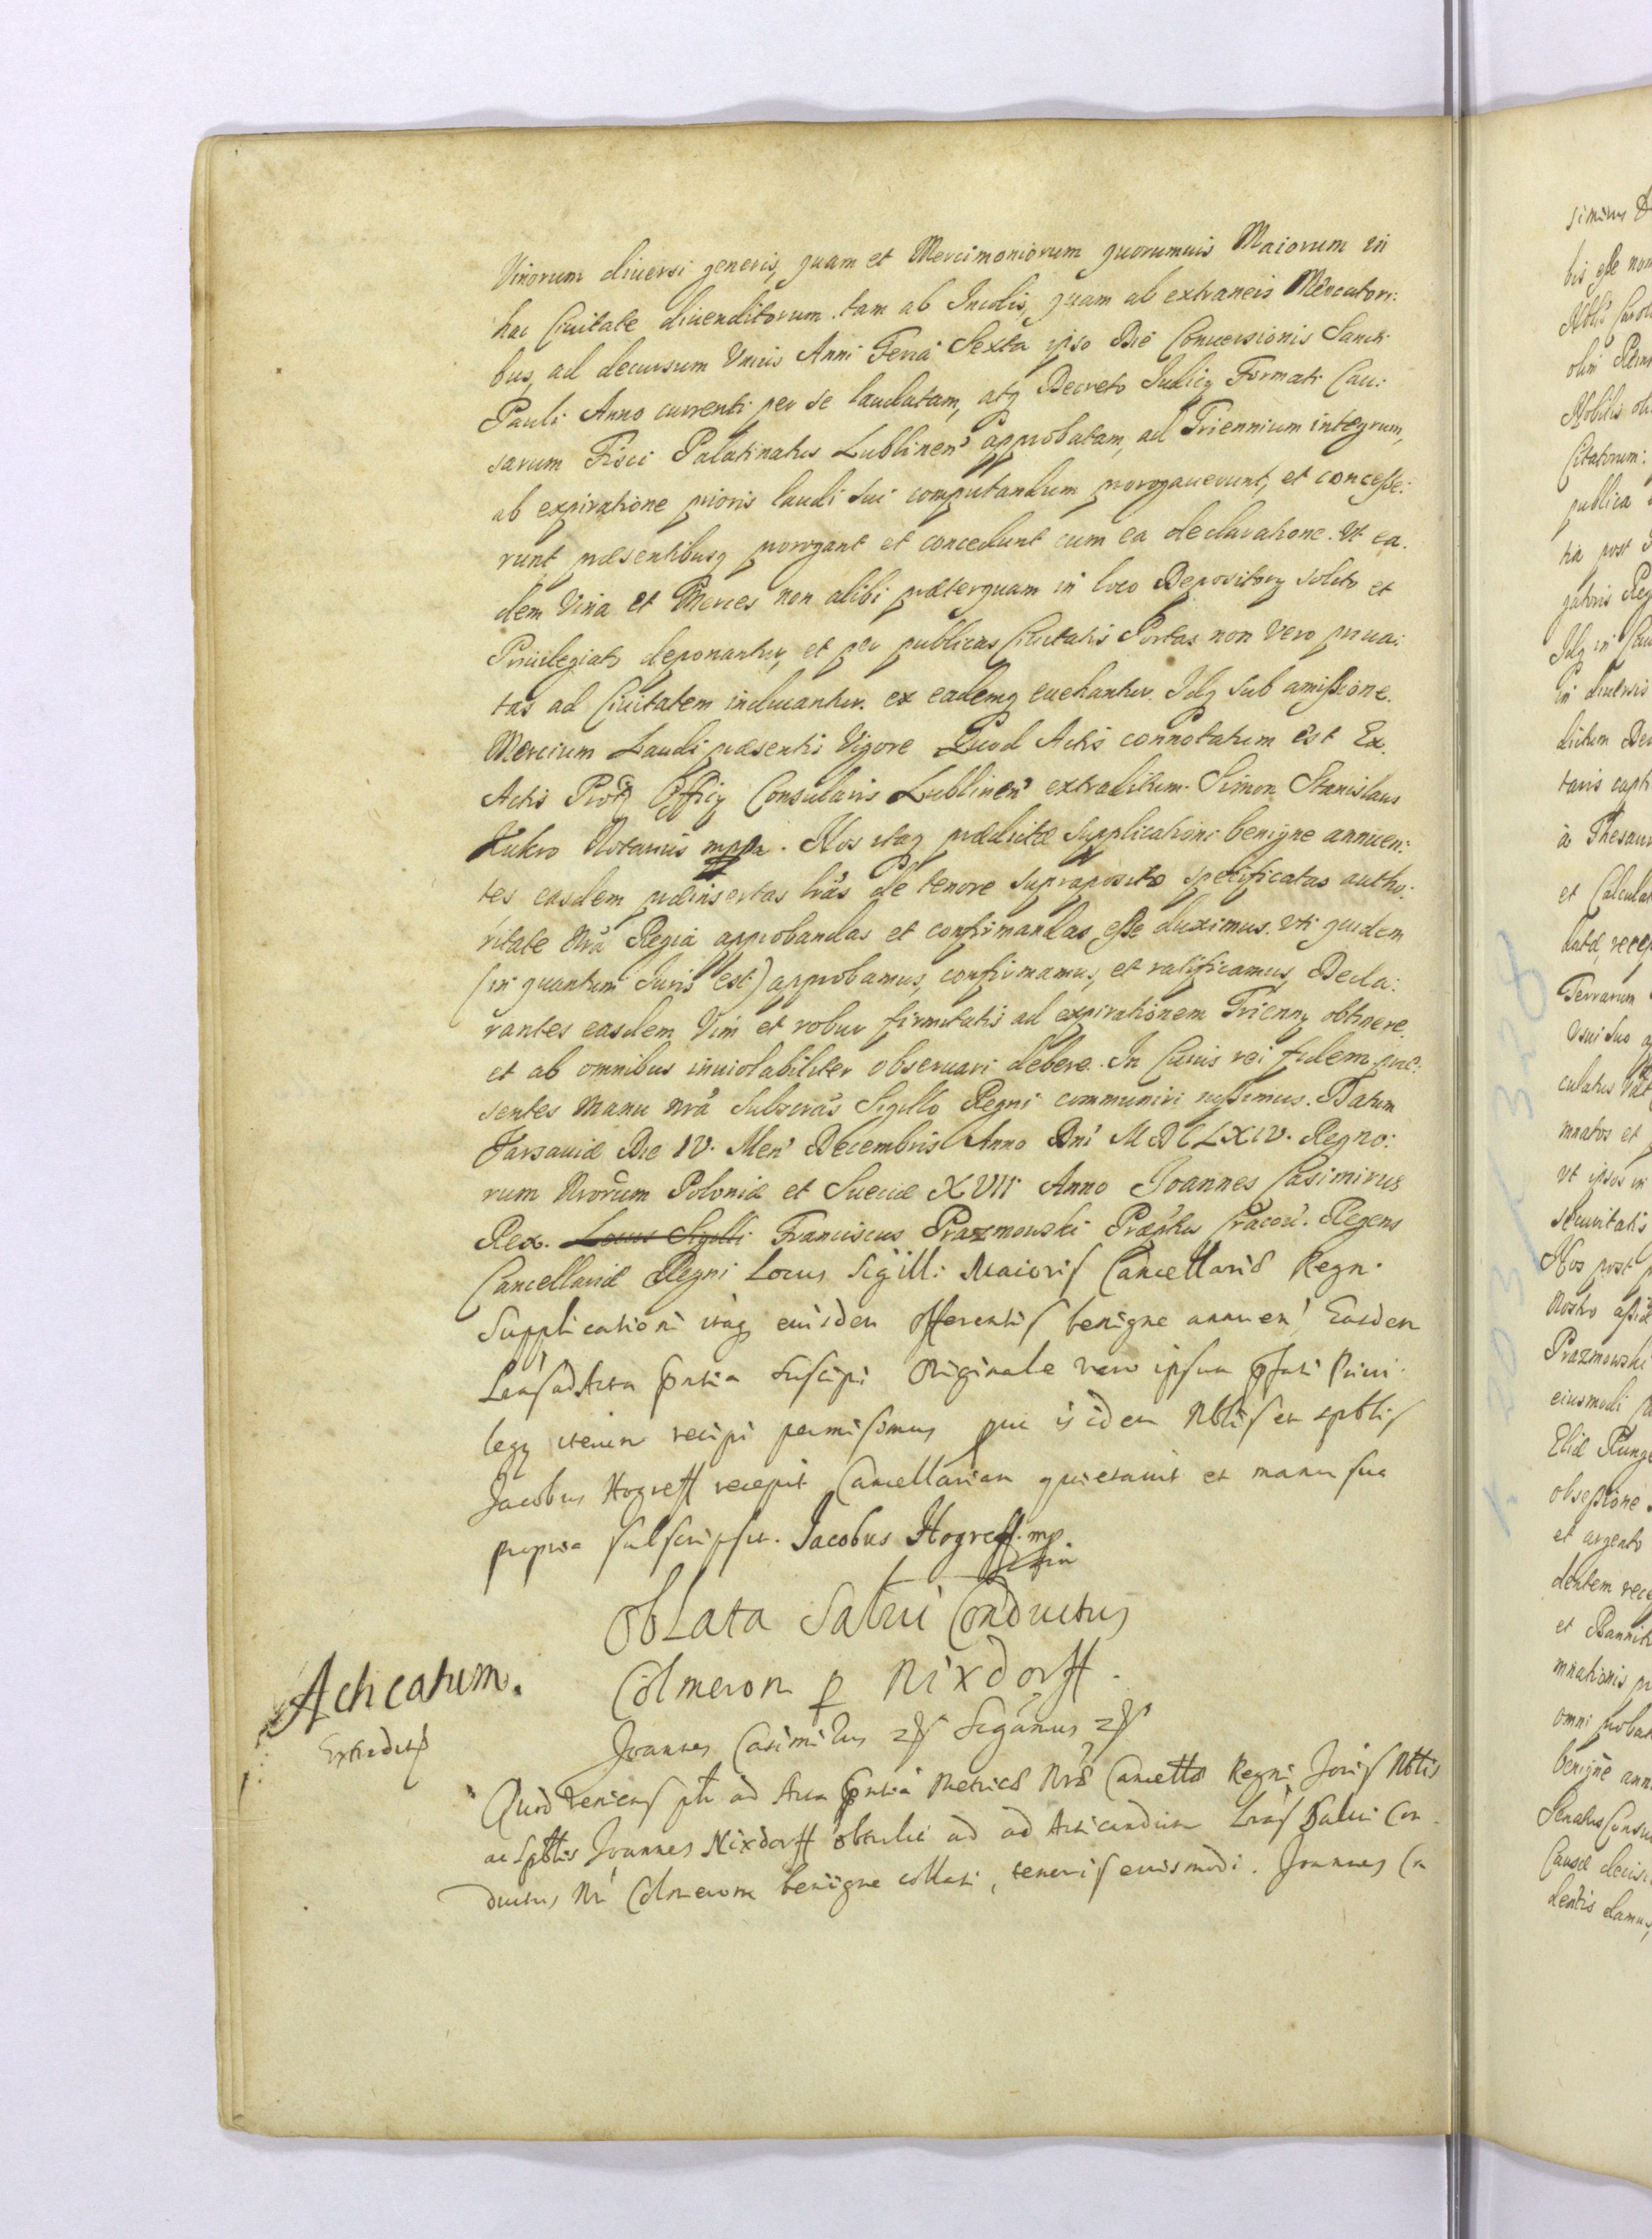 Vinorum diuersi generis, quam et Mercimoniorum quorumuis Maiorum in
hac Ciuitate diuenditorum tam ab Incolis, quam ab extraneis Mercatori:
bus, ad decursum Vnius Anni Feria Sexta ipso Die Conuersionis Sancti
Pauli Anno currenti per se laudatam, atq Decreto Iudicy Formati Cau:
sarum Fisci Palatinatus Lublinen' approbatam, ad Triennium integrum,
ab expiratione prioris laudi sui computandum prorogauerunt, et conceße:
runt præsentibusq prorogant et concedunt cum ea declaratione. Vt ea.
dem Vina et Merces non alibi præterquam in loco Depository solito et
Priuilegiato deponantur, et per publicas Ciuitatis Portas non vero priua:
tas ad Ciuitatem inducantur. ex eademq euehantur. Idq sub amißione.
Mercium Laudi præsentis Vigore Quod Actis connotatum est Ex.
Actis Protq Officy Consularis Lublinen' extraditum. Simon Stanislaus
Notarius mppa. Nos itaq prædictæ supplicationi benigne annuen:
tes easdem præinsertas lrãs de tenore supraposito specificatas autho:
ritate Nrã Regia approbandas et confirmandas eße duximus. Vti quidem
(in quantum Iuris est) approbamus, confirmamus, et ratificamus, Decla:
rantes easdem Vim et robur firmitatis ad expirationem Trienny obtinere.
et ab omnibus inuiolabiliter obseruari debere. In Cuius rei fidem præ:
sentes manu nrã Subscras Sigillo Regni communiri iußimus. Datum
Varsauiæ Die IV. Men' Decembris Anno Dni MDCLXIV. Regno:
rum Nrorum Poloniæ et Sueciæ XVII Anno Joannes Casimirus
Rex. Locus Sigilli Franciscus Prazmowski Præptus Cracou'. Regens
Cancellariæ Regni Locus Sigilli Maioris Cancellariæ Regni.
Supplicationi itaq euisdem Offerentis benigne annuen' Easdem
Lras ad Acta pñtia suscipi Originale vero ipsum pfati Priui.
legy iterum recipi permisimus quie isidem Nblis et spblis
Jacobus Hogreff recepit Cancellariam quietauit et manu sua
propria subscripsit. Jacobus Hogreff. mp
Oblata Salui Conductus
Colmeron p Nixdorff.
Acticatum.
Extraditum
Joannes Casimirus Siganus
Quod veniens ad Acta pñtia Metrices Nræ Cancellæ Regni Nblis
ac Spblis Joannes Nixdorff obtulit ad Acticandum Lras Salui Con
ductus Nri Colmerom benigne collati, tenoris euismodi. Joannes Ca